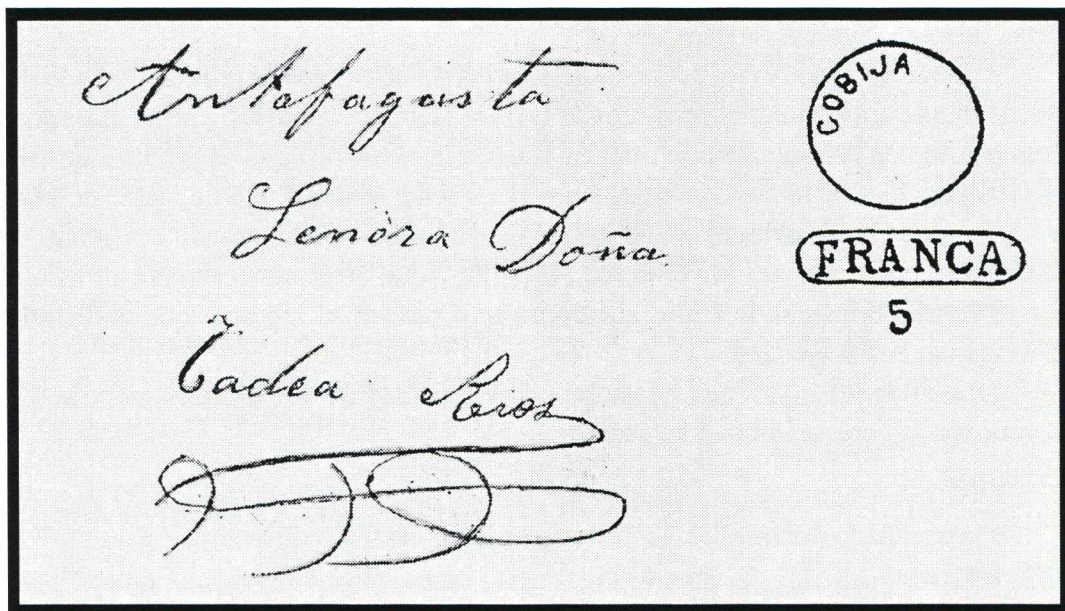 Antofagasta
Senòra Doña
Tadea Rios
COBIJA
FRANCA
5